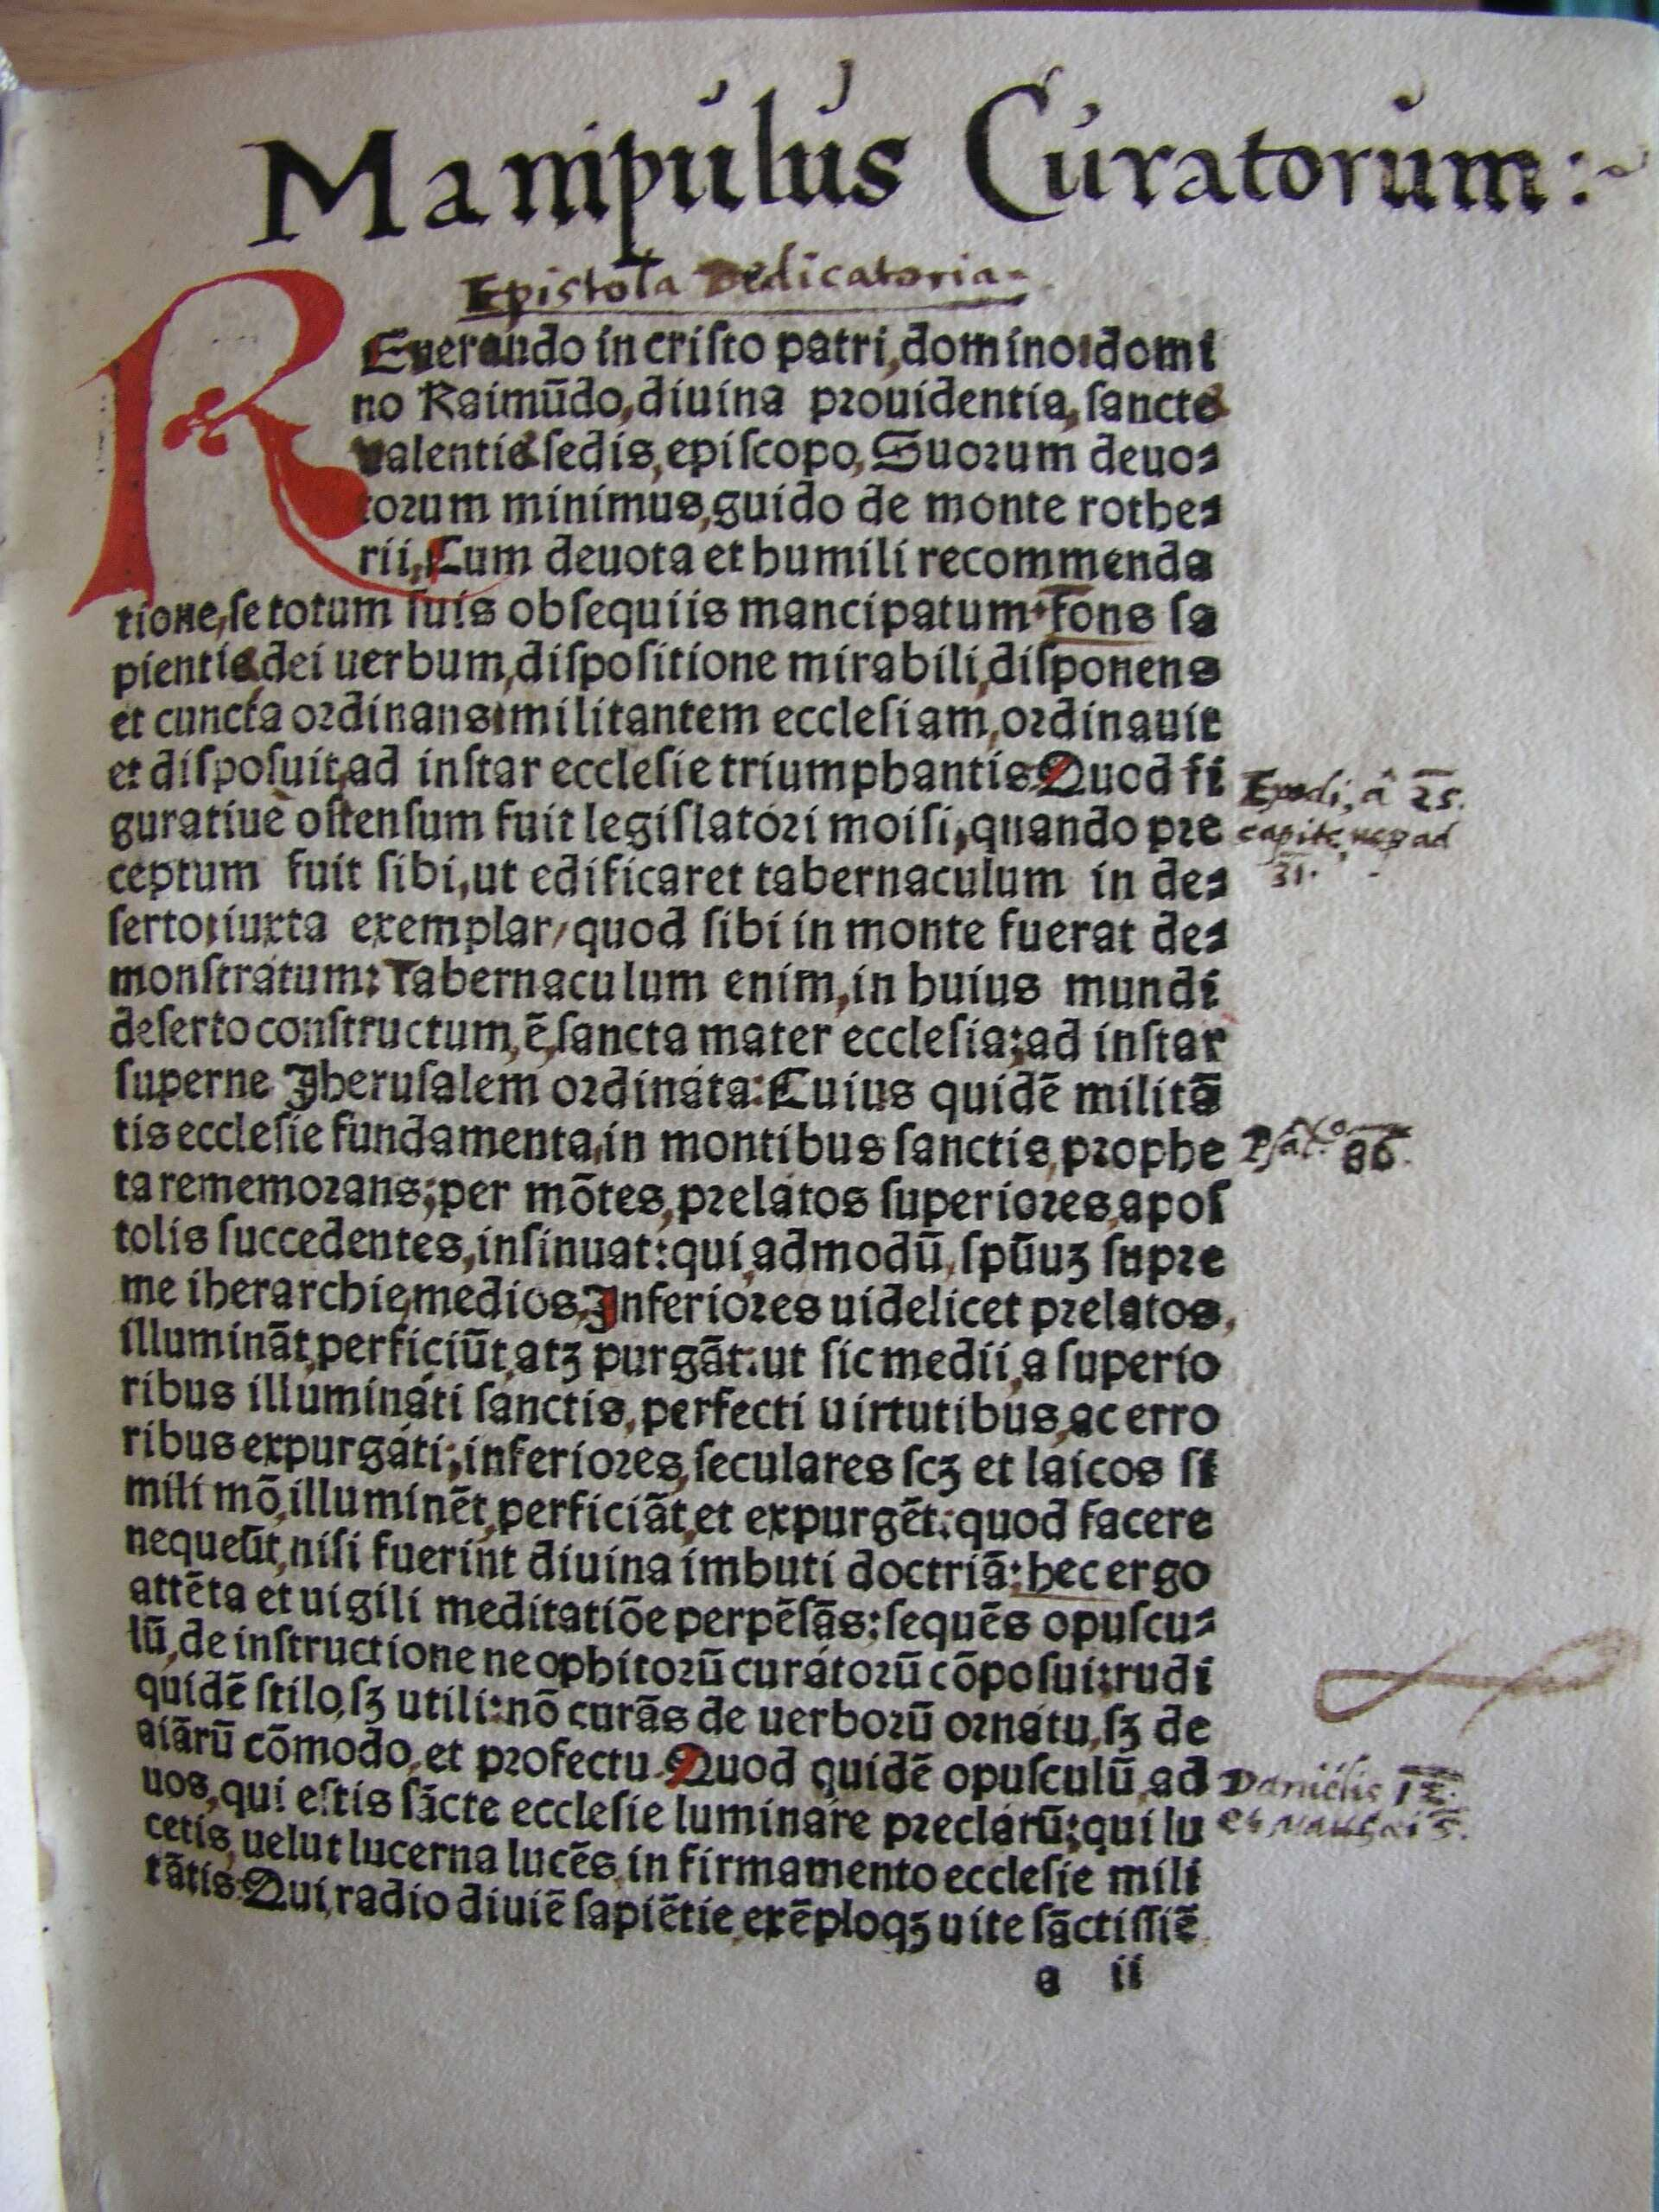 Manipulus Curatorum:~
Epistola Dedicatoria.
REuerando in cristo patri, domino domi
no Raimūdo, diuina prouidentia, sancte
valentie sedis, episcopo, Suorum deuo-
torum minimus, guido de monte rothe-
rii, Cum deuota et humili recommenda
tione, se totum suis obsequiis mancipatum. Fons sa
pientie, dei uerbum, dispositione mirabili, disponens
et cuncta ordinans militantem ecclesiam, ordinauit
et disposuit, ad instar ecclesie triumphantis. Quod fi
guratiue ostensum fuit legislatori moisi, quando pre
ceptum fuit sibi, ut edificaret tabernaculum in de-
serto, iuxta exemplar/ quod sibi in monte fuerat de-
monstratum: Tabernaculum enim, in huius mundi
deserto constructum, ē, sancta mater ecclesia; ad instar
superne Jherusalem ordinata: Cuius quidē militā
tis ecclesie fundamenta, in montibus sanctis, prophe
ta rememorans; per mōtes, prelatos superiores, apos
tolis succedentes, insinuat: qui, admodū, spūuꝫ supre
me iherarchie, medios, Inferiores uidelicet prelatos,
illumināt, perficiūt, atꝫ purgāt: ut sic medii, a superio
ribus illuminati sanctis, perfecti uirtutibus, ac erro
ribus expurgati; inferiores, seculares scꝫ et laicos si
mili mō, illuminēt, perficiāt, et expurgēt: quod facere
nequeūt, nisi fuerint diuina imbuti doctriā: hec ergo
attēta et uigili meditatiōe perpēsās: sequēs opuscu-
lū, de instructione neophitorū curatorū cōposui: rudi
quidē stilo, sꝫ utili: nō curās de uerborū ornatu, sꝫ de
aiārū cōmodo, et profectu. Quod quidē opusculū, ad
uos, qui estis sācte ecclesie luminare preclarū; qui lu
cetis, uelut lucerna lucēs, in firmamento ecclesie mili
tātis: Qui, radio diuiē sapiētie, exēploqꝫ uite sāctissiē
a ii
Exodi, â 25.
capite, usq ad
31.
Psal. 86.
Daniélis 12.
et Matthæi 5.